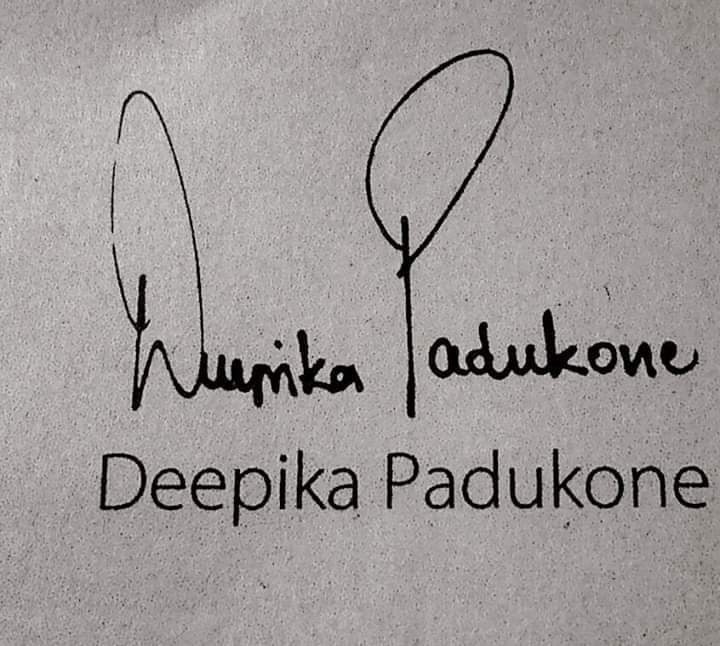 Deepika Padukone
Deepika Padukone